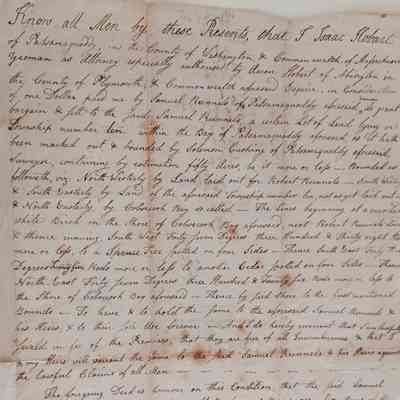 Know all Men by these Presents, that I Isaac Hobart
of Passamaquoddy, in the County of Washington, & Commonwealth of Massachusetts
Yeoman as Attorney especially authorised by Aaron Hobart of Abington in
the County of Plymouth, & Commonwealth aforesaid Esquire, in Consideration
of one Dollar paid me by Samuel Runnels of Passamaquoddy aforesaid, do grant
bargain & sell to the said Samuel Runnels, a certain Lot of Land lying in
Township number ten within the Bay of Passamaquoddy aforesaid, as the same hath
been marked out & bounded by Solomon Cushing of Passamaquoddy aforesaid
Surveyor, containing by estimation fifty Acres, be it more or less — Bounded as
followeth, viz. North Westerly by Land, laid out for Robert Runnels — South West
& South Easterly by Land of the aforesaid Township number not as yet laid out
& North Easterly, by Cobscook Bay so called — The Lines beginning at a marked
white Birch on the Shore of Cobscook Bay aforesaid, next Robert Runnels Land
& thence running South West Forty four Degrees three Hundred & thirty eight
more or less, to a Spruce Tree spotted on four Sides — Thence South East Forty
Degrees Rods more or less to another Cedar spotted on four Sides — Thence
North East Forty four Degrees three Hundred & Twenty four Rods more or less to
the Shore of Cobscook Bay aforesaid — Thence by said Shore to the first mentioned
Bounds — To have & to hold the same to the aforesaid Samuel Runnels &
his Heirs, & to their Use for ever — And I do hereby covenant that I am lawfully
seized in fee of the Premises, that they are free of all Incumbrances & that I
& my Heirs will warrant the same to the said Samuel Runnels & his Heirs against
the lawful Claims of all Men
The foregoing Deed is however on this Condition, that the said Samuel